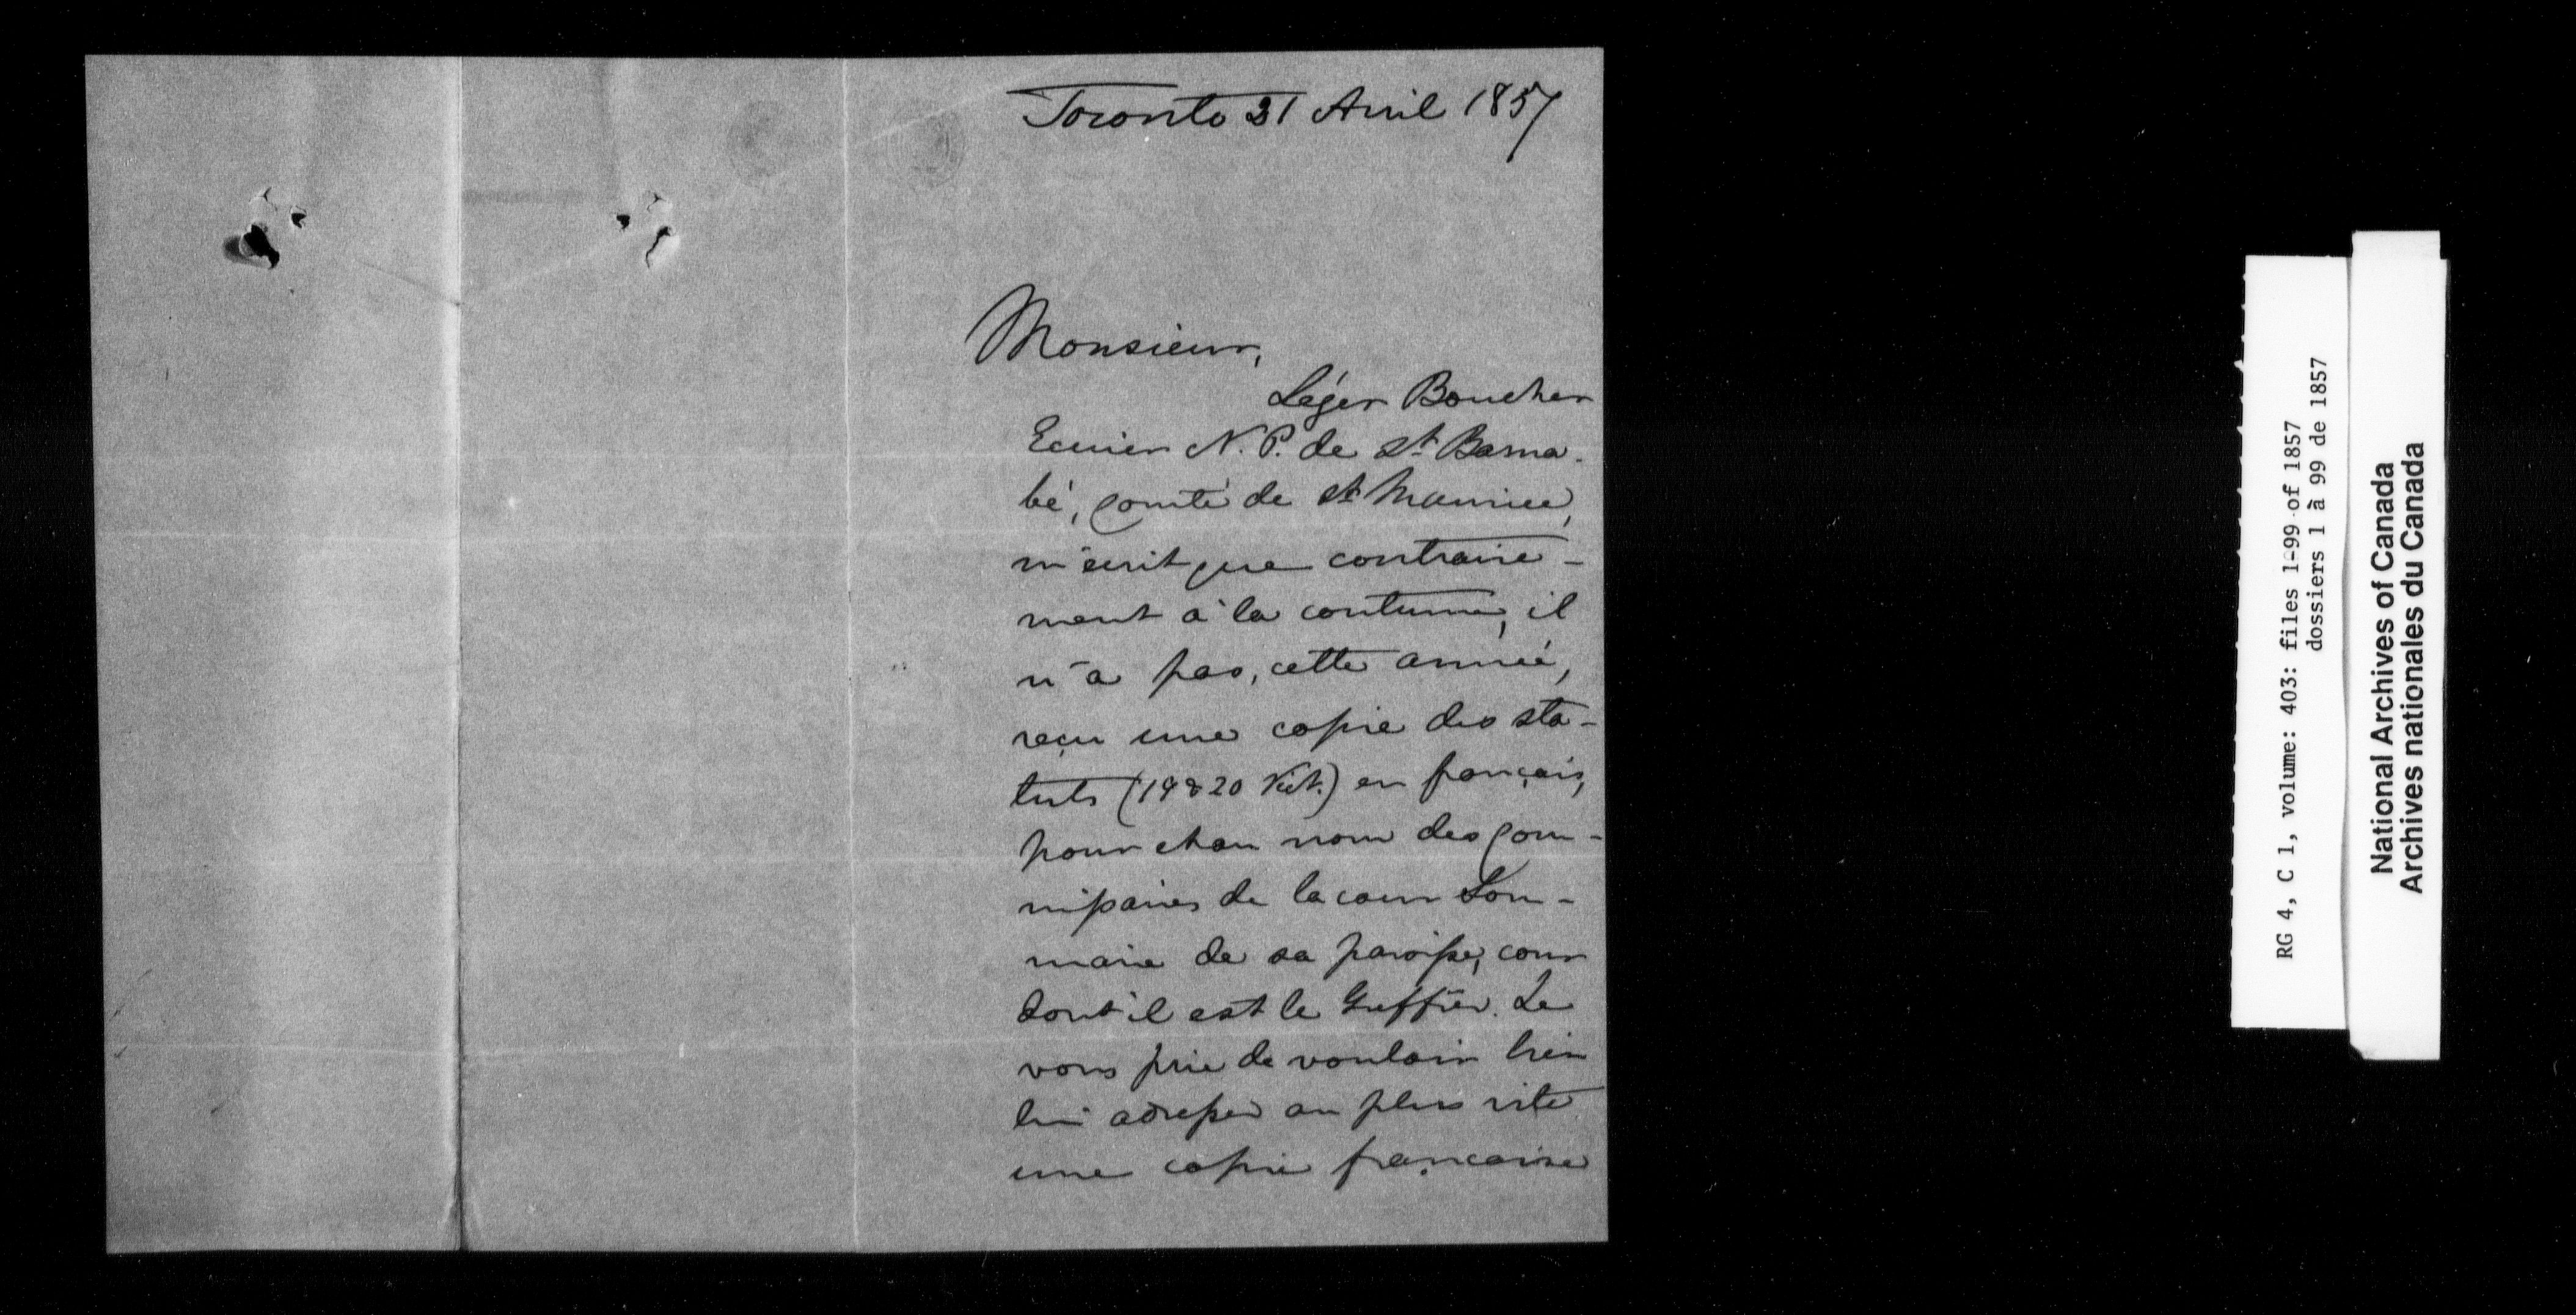 Toronto 21 Avril 1857
Monsieur,
Léger Boucher
Ecuier N. P. de St. Barna-
bé, Comté de St Maurice,
m'écrit que contraire-
ment à la coutume, il
n'a pas, cette année,
reçu une copie des sta-
tuts (19 & 20 Vict.) en français,
pour nom des Com-
missaires de la cour Som-
maire de sa paroisse, cour
dont il est le Greffier. Je
vous prie de vouloir bien
lui adresser au plus vite
une copie française
RG 4, C 1, volume: 403: files 1-99 of 1857
dossiers 1 à 99 de 1857
National Archives of Canada
Archives nationales du Canada